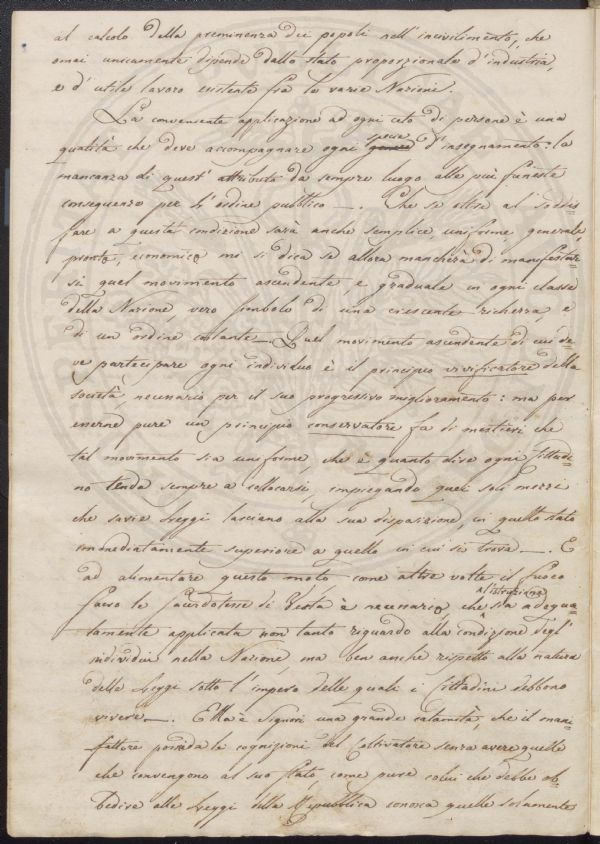 al calcolo della preminenza dei popoli nell'incivilimento, che
omai unicamente dipende dallo stato proporzionale d'industria,
e d'utile lavoro esistente fra le varie Nazioni.
La conveniente applicazione ad ogni ceto di persone è una
qualità che deve accompagnare ogni genere specie d'insegnamento: la
mancanza di quest'attributo da sempre luogo alle più funeste
conseguenze per l'ordine pubblico —. Che se oltre al sodis
fare a questa condizione sarà anche semplice uniforme, generale,
pronto, economico mi si dica se allora mancherà di manifestar
si quel movimento ascendente e graduale in ogni classe
della Nazione, vero simbolo di una crescente richezza, e
di un ordine costante —. Quel movimento ascendente di cui de
ve partecipare ogni individuo è il principio vivificatore della
società, necessario per il suo progressivo miglioramento: ma per
esserne pure un principio conservatore fa di mestieri che
tal movimento sia uniforme che è quanto dire ogni Cittadi
no tenda sempre a collocarsi, impiegando quei soli mezzi
che savie Leggi lasciano alla sua disposizione, in quello stato
immediatamente superiore a quello in cui si trova —. E
ad alimentare questo moto come altre volte il fuoco
sacro le Sacerdotesse di Vesta è necessario che l'istruzione sia adequa
tamente applicata non tanto riguardo alla condizione degl'
individui nella Nazione, ma ben anche rispetto alla natura
delle Leggi sotto l'impero delle quali i Cittadini debbono
vivere —. Ella è Signori una grande calamità, che il mani
fattore possieda le cognizioni del Coltivatore senza avere quelle
che convengono al suo stato, come pure colui che debbe ob
bedire alle Leggi della Repubblica conosca quelle solamente